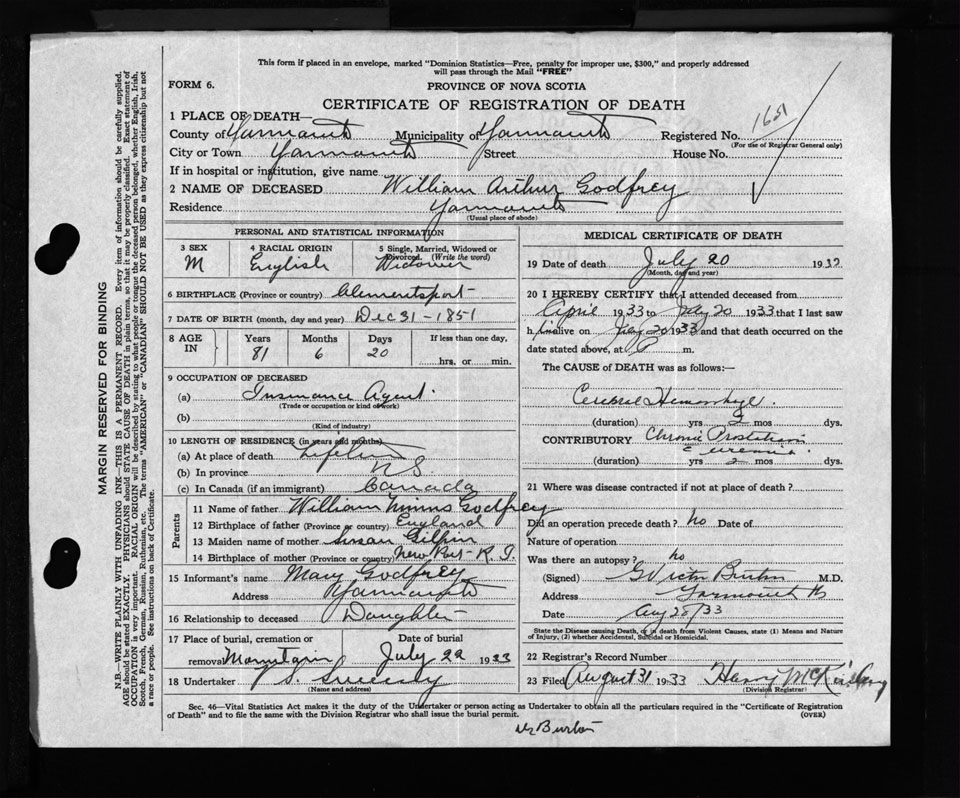 This form if placed in an envelope, marked "Dominion Statistics—Free, penalty for improper use, $300," and properly addressed
will pass through the Mail "FREE"
FORM 6.
PROVINCE OF NOVA SCOTIA
CERTIFICATE OF REGISTRATION OF DEATH
1 PLACE OF DEATH—
County of Yarmouth Municipality of Yarmouth Registered No. 1651
(For use of Registrar General only)
City or Town Yarmouth Street House No.
If in hospital or institution, give name
2 NAME OF DECEASED William Arthur Godfrey
Residence Yarmouth
(Usual place of abode)
PERSONAL AND STATISTICAL INFORMATION
3 SEX 4 RACIAL ORIGIN 5 Single, Married, Widowed or
Divorced. (Write the word)
M English Widower
6 BIRTHPLACE (Province or country) Clementsport
7 DATE OF BIRTH (month, day and year) Dec 31-1851
8 AGE IN Years Months Days If less than one day,
81 6 20 hrs. or min.
9 OCCUPATION OF DECEASED
(a) Insurance Agent
(Trade or occupation or kind of work)
(b)
(Kind of industry)
10 LENGTH OF RESIDENCE (in years and months)
(a) At place of death Lifetime
(b) In province NS
(c) In Canada (if an immigrant) Canada
Parents
11 Name of father William Godfrey
12 Birthplace of father (Province or country) England
13 Maiden name of mother Susan Gilpin
14 Birthplace of mother (Province or country) New Port-R.I.
15 Informant's name Mary Godfrey
Address Yarmouth
16 Relationship to deceased Daughter
17 Place of burial, cremation or Date of burial
removal July 22 1933
18 Undertaker Sweeny
(Name and address)
MEDICAL CERTIFICATE OF DEATH
19 Date of death July 20 1933
(Month, day and year)
20 I HEREBY CERTIFY that I attended deceased from
April 1933 to July 20 1933 that I last saw
h im alive on July 20 1933 and that death occurred on the
date stated above, at P m.
The CAUSE of DEATH was as follows:—
Cerebral Hemorrhage.
(duration) yrs 2 mos dys.
CONTRIBUTORY Chronic
(duration) yrs 2 mos dys.
21 Where was disease contracted if not at place of death?
Did an operation precede death? no Date of
Nature of operation
Was there an autopsy? no
(Signed) G Victor Burton M.D.
Address Yarmouth
Date Aug 28/33
State the Disease causing Death, or in death from Violent Causes, state (1) Means and Nature
of Injury, (2) whether Accidental, Suicidal or Homicidal.
22 Registrar's Record Number
23 Filed August 31 1933 Harry
(Division Registrar)
Sec. 46—Vital Statistics Act makes it the duty of the Undertaker or person acting as Undertaker to obtain all the particulars required in the "Certificate of Registration
of Death" and to file the same with the Division Registrar who shall issue the burial permit. (OVER)
Dr Burton
MARGIN RESERVED FOR BINDING
N.B.—WRITE PLAINLY WITH UNFADING INK—THIS IS A PERMANENT RECORD. Every item of information should be carefully supplied.
AGE should be stated EXACTLY. PHYSICIANS should STATE CAUSE OF DEATH in plain terms, so that it may be properly classified. Exact statement of
OCCUPATION is very important. RACIAL ORIGIN will be described by stating to what people or tongue the deceased person belonged, whether English, Irish,
Scotch, French, German, Russian, Ruthenian, etc. The terms "AMERICAN" or "CANADIAN" SHOULD NOT BE USED as they express citizenship but not
a race or people. See instructions on back of Certificate.